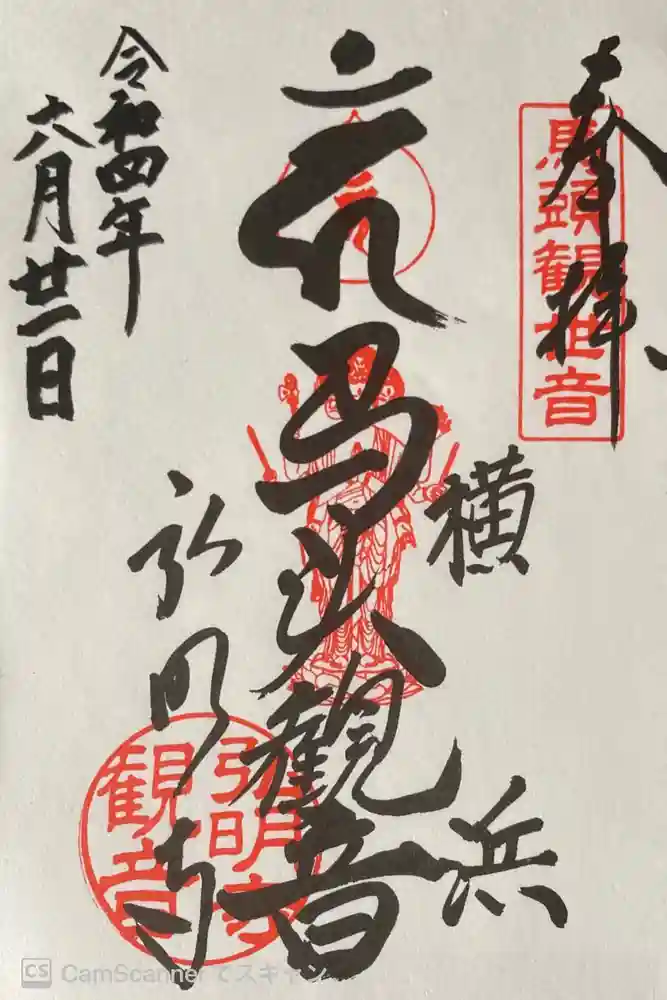 奉拝
馬頭観世音
横浜
馬头観音
弘明寺
弘明寺
観音
令和四年
六月廿一日
CS CamScannerでスキャン